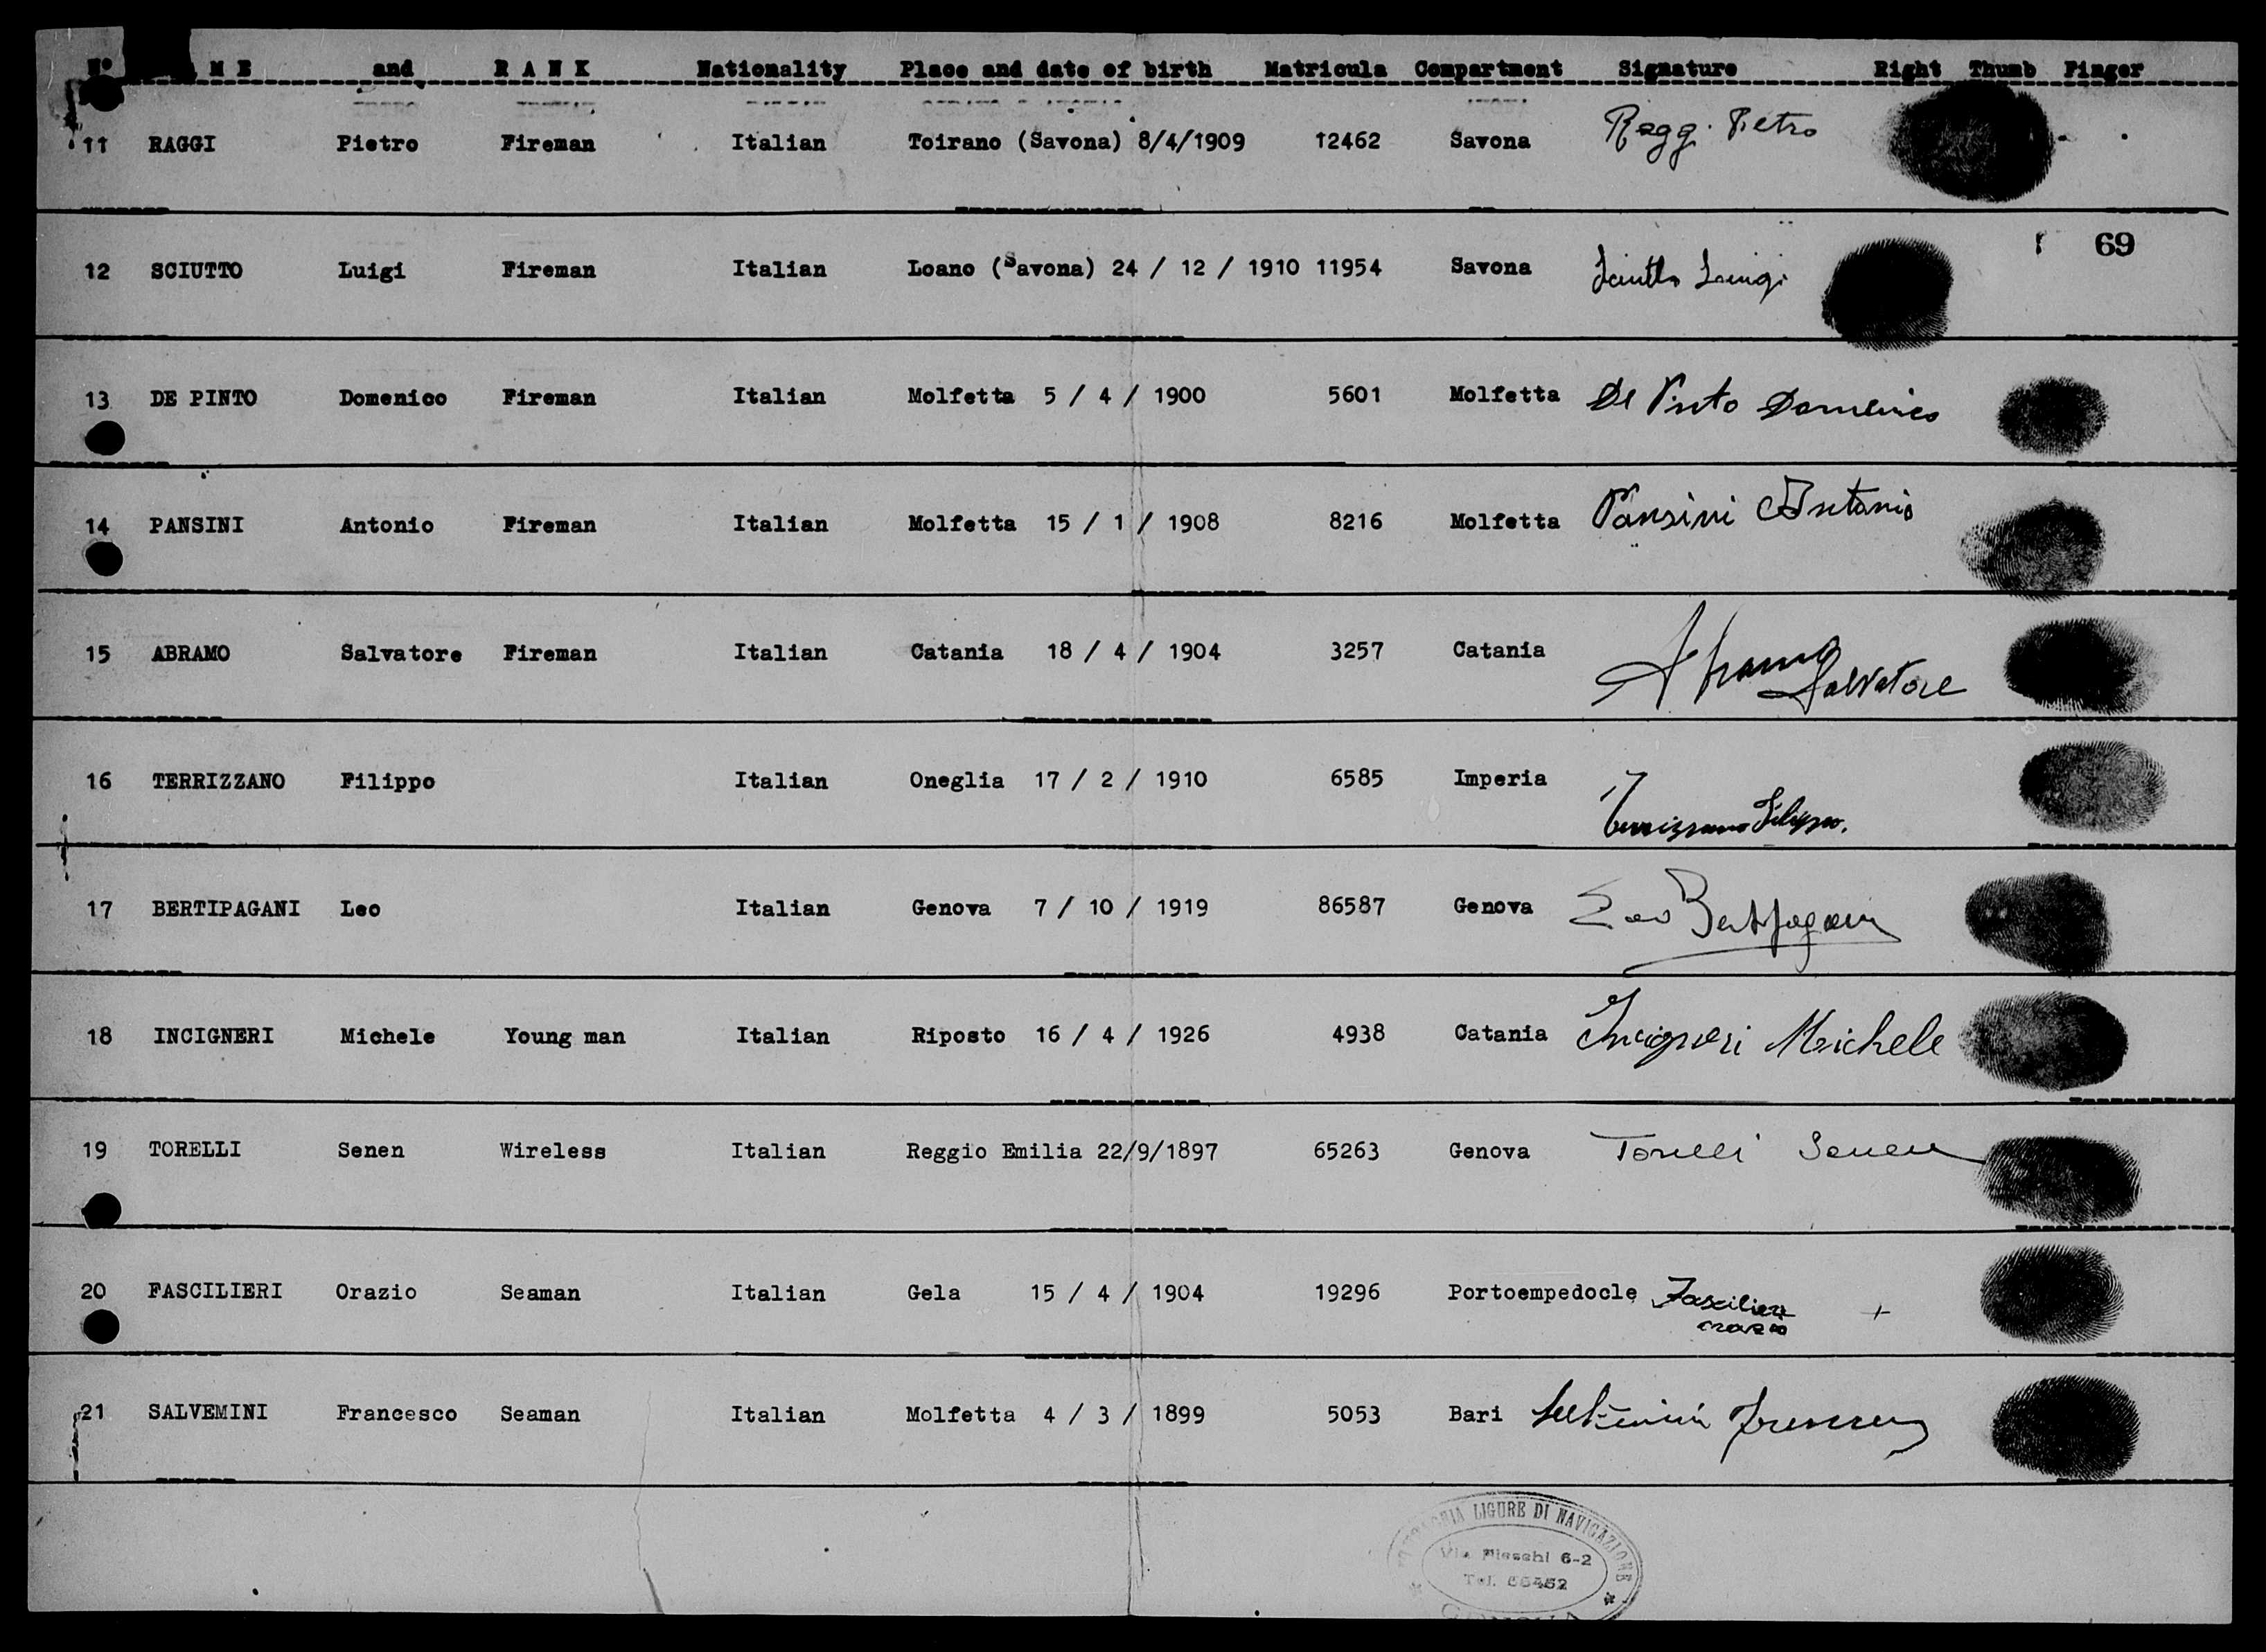 Nº M E and R A N K Nationality Place and date of birth Matricula Compartment Signature Right Thumb Finger
11 RAGGI Pietro Fireman Italian Toirano (Savona) 8/4/1909 12462 Savona Raggi Pietro
69
12 SCIUTTO Luigi Fireman Italian Loano (Savona) 24 / 12 / 1910 11954 Savona Sciutto Luigi
13 DE PINTO Domenico Fireman Italian Molfetta 5 / 4 / 1900 5601 Molfetta De Pinto Domenico
14 PANSINI Antonio Fireman Italian Molfetta 15 / 1 / 1908 8216 Molfetta Pansini Antonio
15 ABRAMO Salvatore Fireman Italian Catania 18 / 4 / 1904 3257 Catania Abramo Salvatore
16 TERRIZZANO Filippo Italian Oneglia 17 / 2 / 1910 6585 Imperia Terrizzano Filippo.
17 BERTIPAGANI Leo Italian Genova 7 / 10 / 1919 86587 Genova Leo Bertipagani
18 INCIGNERI Michele Young man Italian Riposto 16 / 4 / 1926 4938 Catania Incigneri Michele
19 TORELLI Senen Wireless Italian Reggio Emilia 22/9/1897 65263 Genova Torelli Senen
20 FASCILIERI Orazio Seaman Italian Gela 15 / 4 / 1904 19296 Portoempedocle Fascilieri orazio +
21 SALVEMINI Francesco Seaman Italian Molfetta 4 / 3 / 1899 5053 Bari Salvemini Francesco
LIGURE DI NAVIGAZIONE
Via Fieschi 6-2
Tel.
GENOVA